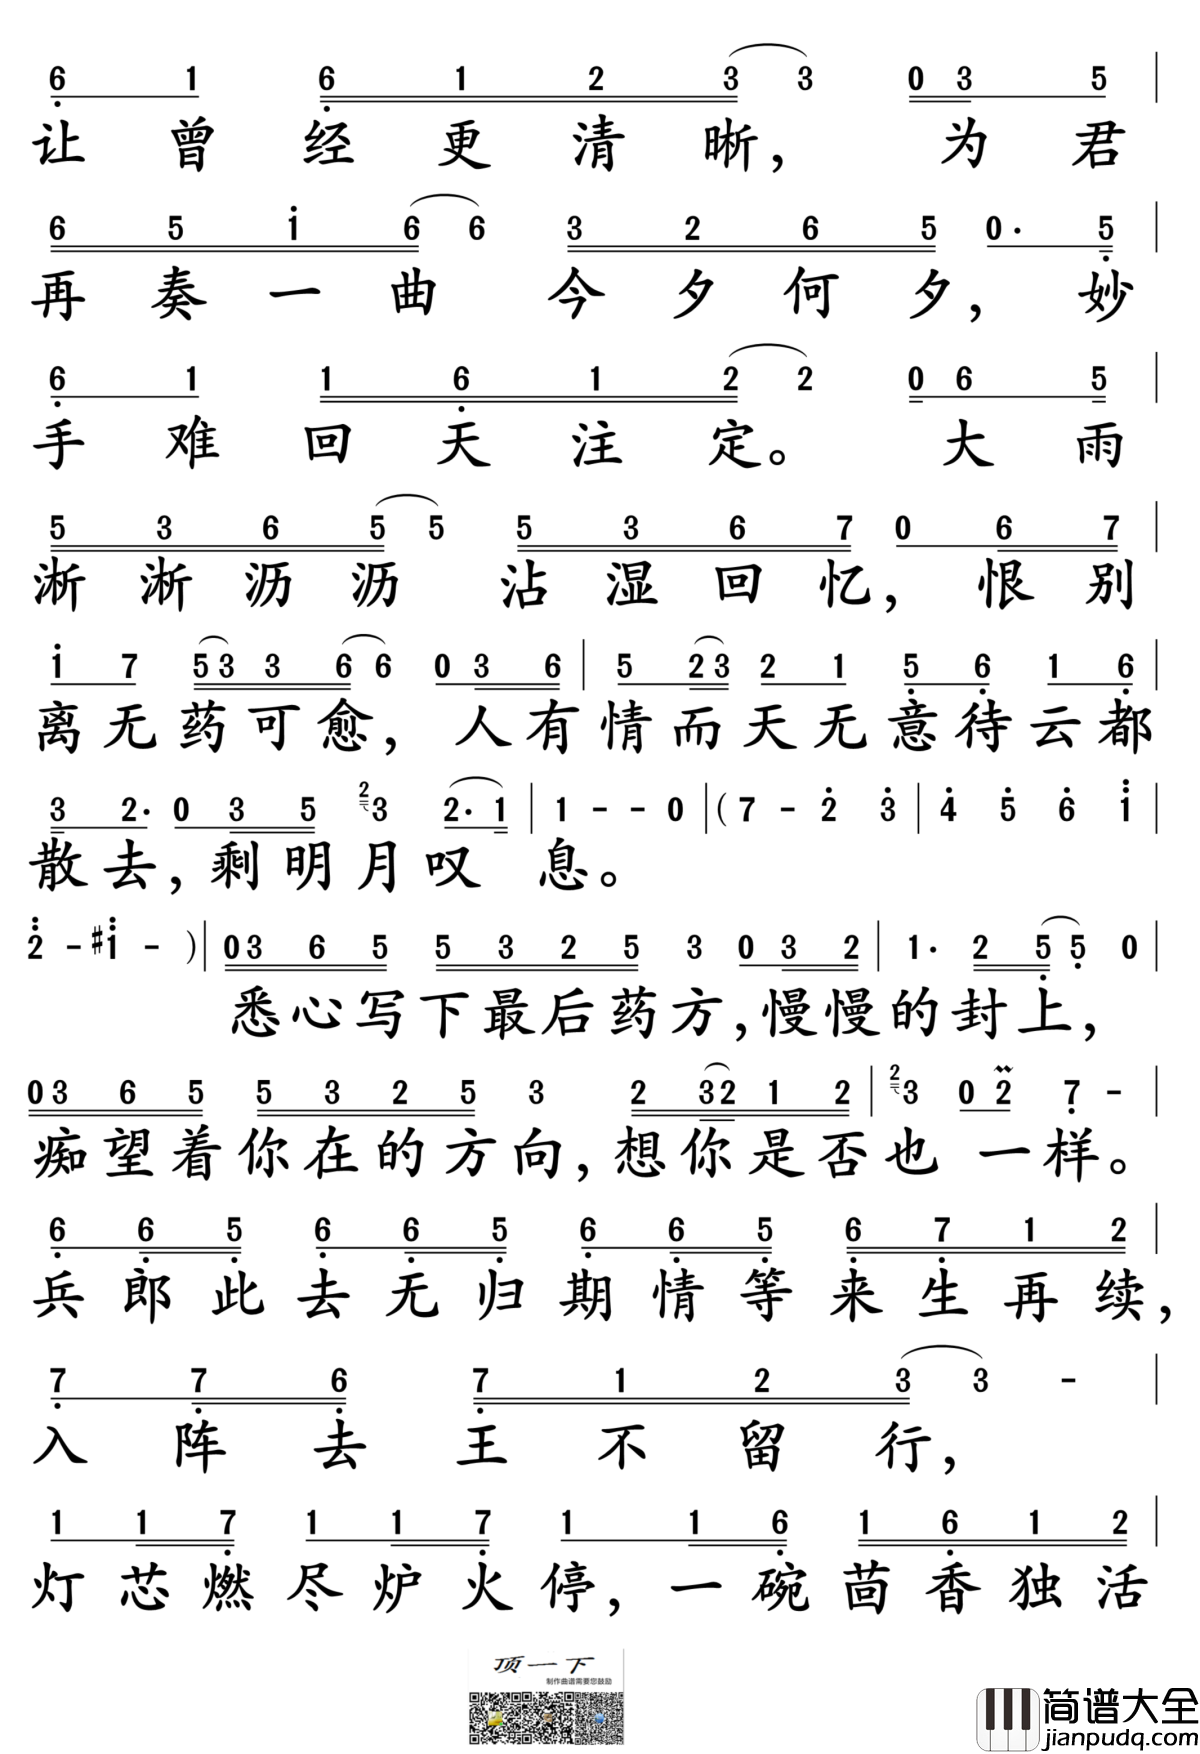 6 1 6 1 2 3 3 0 3 5
让曾经更清晰，为君
6 5 1 6 6 3 2 6 5 0· 5
再奏一曲今夕何夕，妙
6 1 1 6 1 2 2 0 6 5
手难回天注定。大雨
5 3 6 5 5 5 3 6 7 0 6 7
淅淅沥沥沾湿回忆，恨别
1 7 5 3 3 6 6 0 3 6 5 2 3 2 1 5 6 1 6
离无药可愈，人有情而天无意待云都
3 2· 0 3 5 2 3 2· 1 1 - - 0 ( 7 - 2 3 4 5 6 1
散去，剩明月叹息。
2 - #1 - ) 0 3 6 5 5 3 2 5 3 0 3 2 1· 2 5 5 0
悉心写下最后药方，慢慢的封上，
0 3 6 5 5 3 2 5 3 2 3 2 1 2 2 3 0 2 7 -
痴望着你在的方向，想你是否也一样。
6 6 5 6 6 5 6 6 5 6 7 1 2
兵郎此去无归期情等来生再续，
7 7 6 7 1 2 3 3 -
入阵去王不留行，
1 1 7 1 1 7 1 1 6 1 6 1 2
灯芯燃尽炉火停，一碗茴香独活
顶一下
制作曲谱需要您鼓励
简谱大全
jianpudq.com